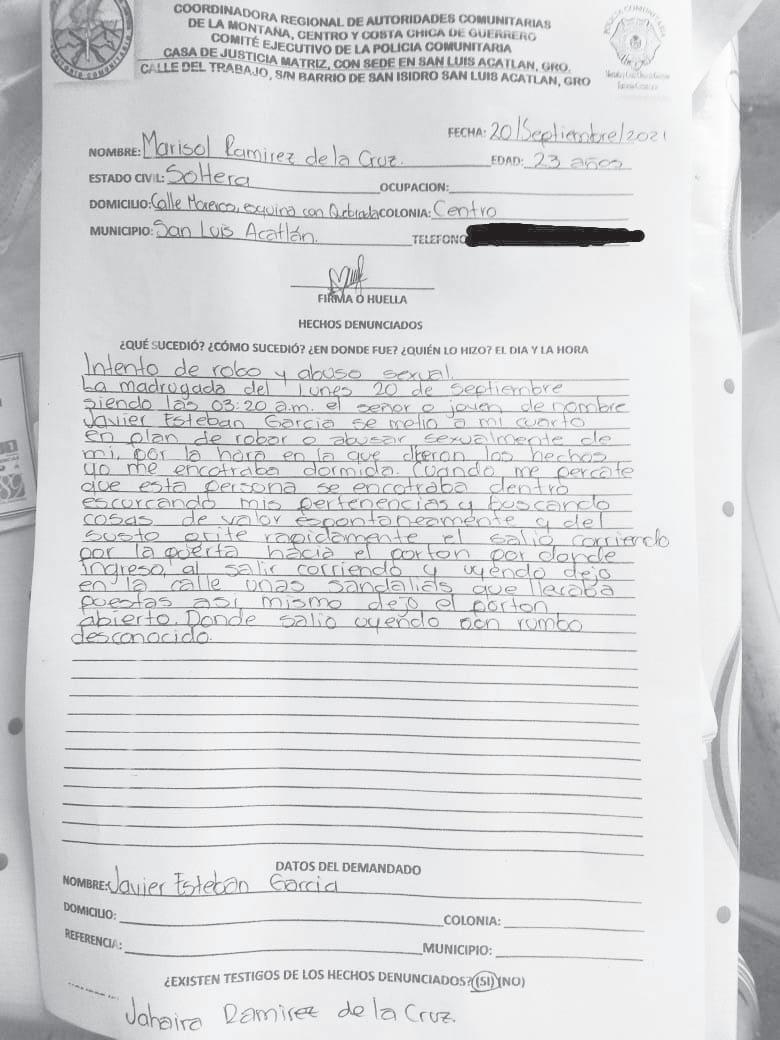 COORDINADORA REGIONAL DE AUTORIDADES COMUNITARIAS
DE LA MONTAÑA, CENTRO Y COSTA CHICA DE GUERRERO
COMITÉ EJECUTIVO DE LA POLICIA COMUNITARIA
CASA DE JUSTICIA MATRIZ, CON SEDE EN SAN LUIS ACATLAN, GRO.
CALLE DEL TRABAJO, S/N BARRIO DE SAN ISIDRO SAN LUIS ACATLAN, GRO
FECHA: 20/Septiembre/2021
NOMBRE: Marisol Ramirez de la Cruz. EDAD: 23 años
ESTADO CIVIL: Soltera OCUPACION:
DOMICILIO: Calle Morelos, esquina con Quebrada COLONIA: Centro
MUNICIPIO: San Luis Acatlán. TELEFONO
FIRMA O HUELLA
HECHOS DENUNCIADOS
¿QUÉ SUCEDIÓ? ¿CÓMO SUCEDIÓ? ¿EN DONDE FUE? ¿QUIÉN LO HIZO? EL DIA Y LA HORA
Intento de robo y abuso sexual.
La madrugada del lunes 20 de septiembre
siendo las 03:20 a.m. el señor o joven de nombre
Javier Esteban Garcia se metio a mi cuarto
en plan de robar o abusar sexualmente de
mi, por la hora en la que dieron los hechos
yo me encotraba dormida. Cuando me percate
que esta persona se encotraba dentro
escurcando mis pertenencias y buscando
cosas de valor espontaneamente y del
susto grite rapidamente el salio corriendo
por la puerta hacia el porton por donde
ingreso, al salir corriendo y uyendo dejo
en la calle unas sandalias que llevaba
puestas asi mismo dejo el porton
abierto. Donde salio uyendo con rumbo
desconocido.
DATOS DEL DEMANDADO
NOMBRE: Javier Esteban Garcia
DOMICILIO: COLONIA:
REFERENCIA: MUNICIPIO:
¿EXISTEN TESTIGOS DE LOS HECHOS DENUNCIADOS? (SI) (NO)
Jahaira Ramirez de la Cruz.